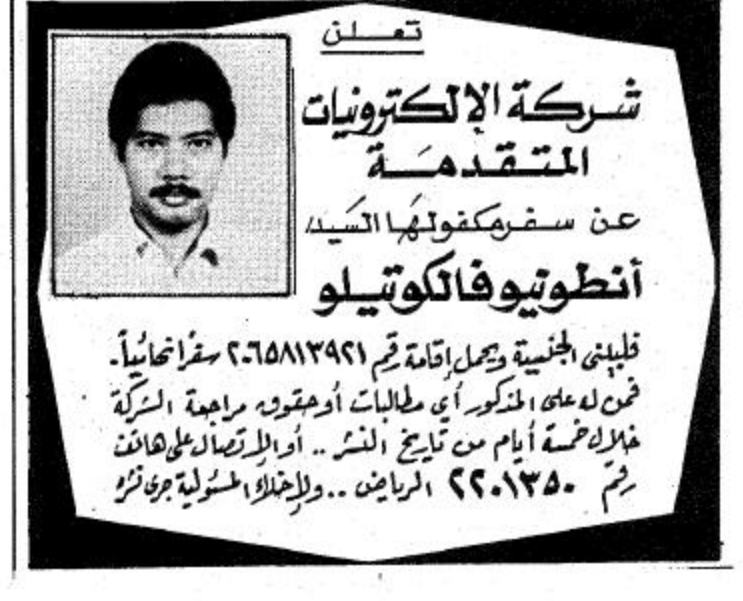 تعلن
شركة الإلكترونيات
المتقدمة
عن سفر مكفولها السيد/
أنطونيو فالكوتيلو
فلبيني الجنسية ويحمل إقامة رقم ٢٠٦٥٨١٣٩٢١ سفراً نهائياً.
فمن له على المذكور أي مطالبات أو حقوق مراجعة الشركة
خلال خمسة أيام من تاريخ النشر .. أو الإتصال على هاتف
رقم ٢٢٠١٣٥٠ الرياض .. ولإخلاء المسئولية جرى نشره